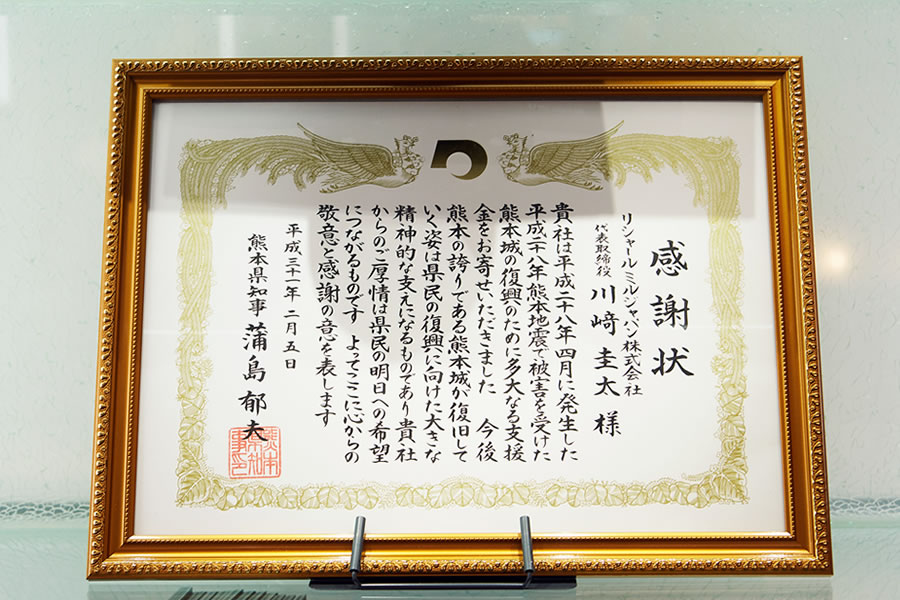 感謝状
リシャールミルジャパン株式会社
代表取締役 川﨑圭太 様
貴社は平成二十八年四月に発生した
平成二八年熊本地震で被害を受けた
熊本城の復興のために多大なる支援
金をお寄せいただきました 今後
熊本の誇りである熊本城が復旧して
いく姿は県民の復興に向けた大きな
精神的な支えになるものであり貴社
からのご厚情は県民の明日への希望
につながるものです よってここに心からの
敬意と感謝の意を表します
平成三十一年二月五日
熊本県知事 蒲島郁夫
熊本県知事印